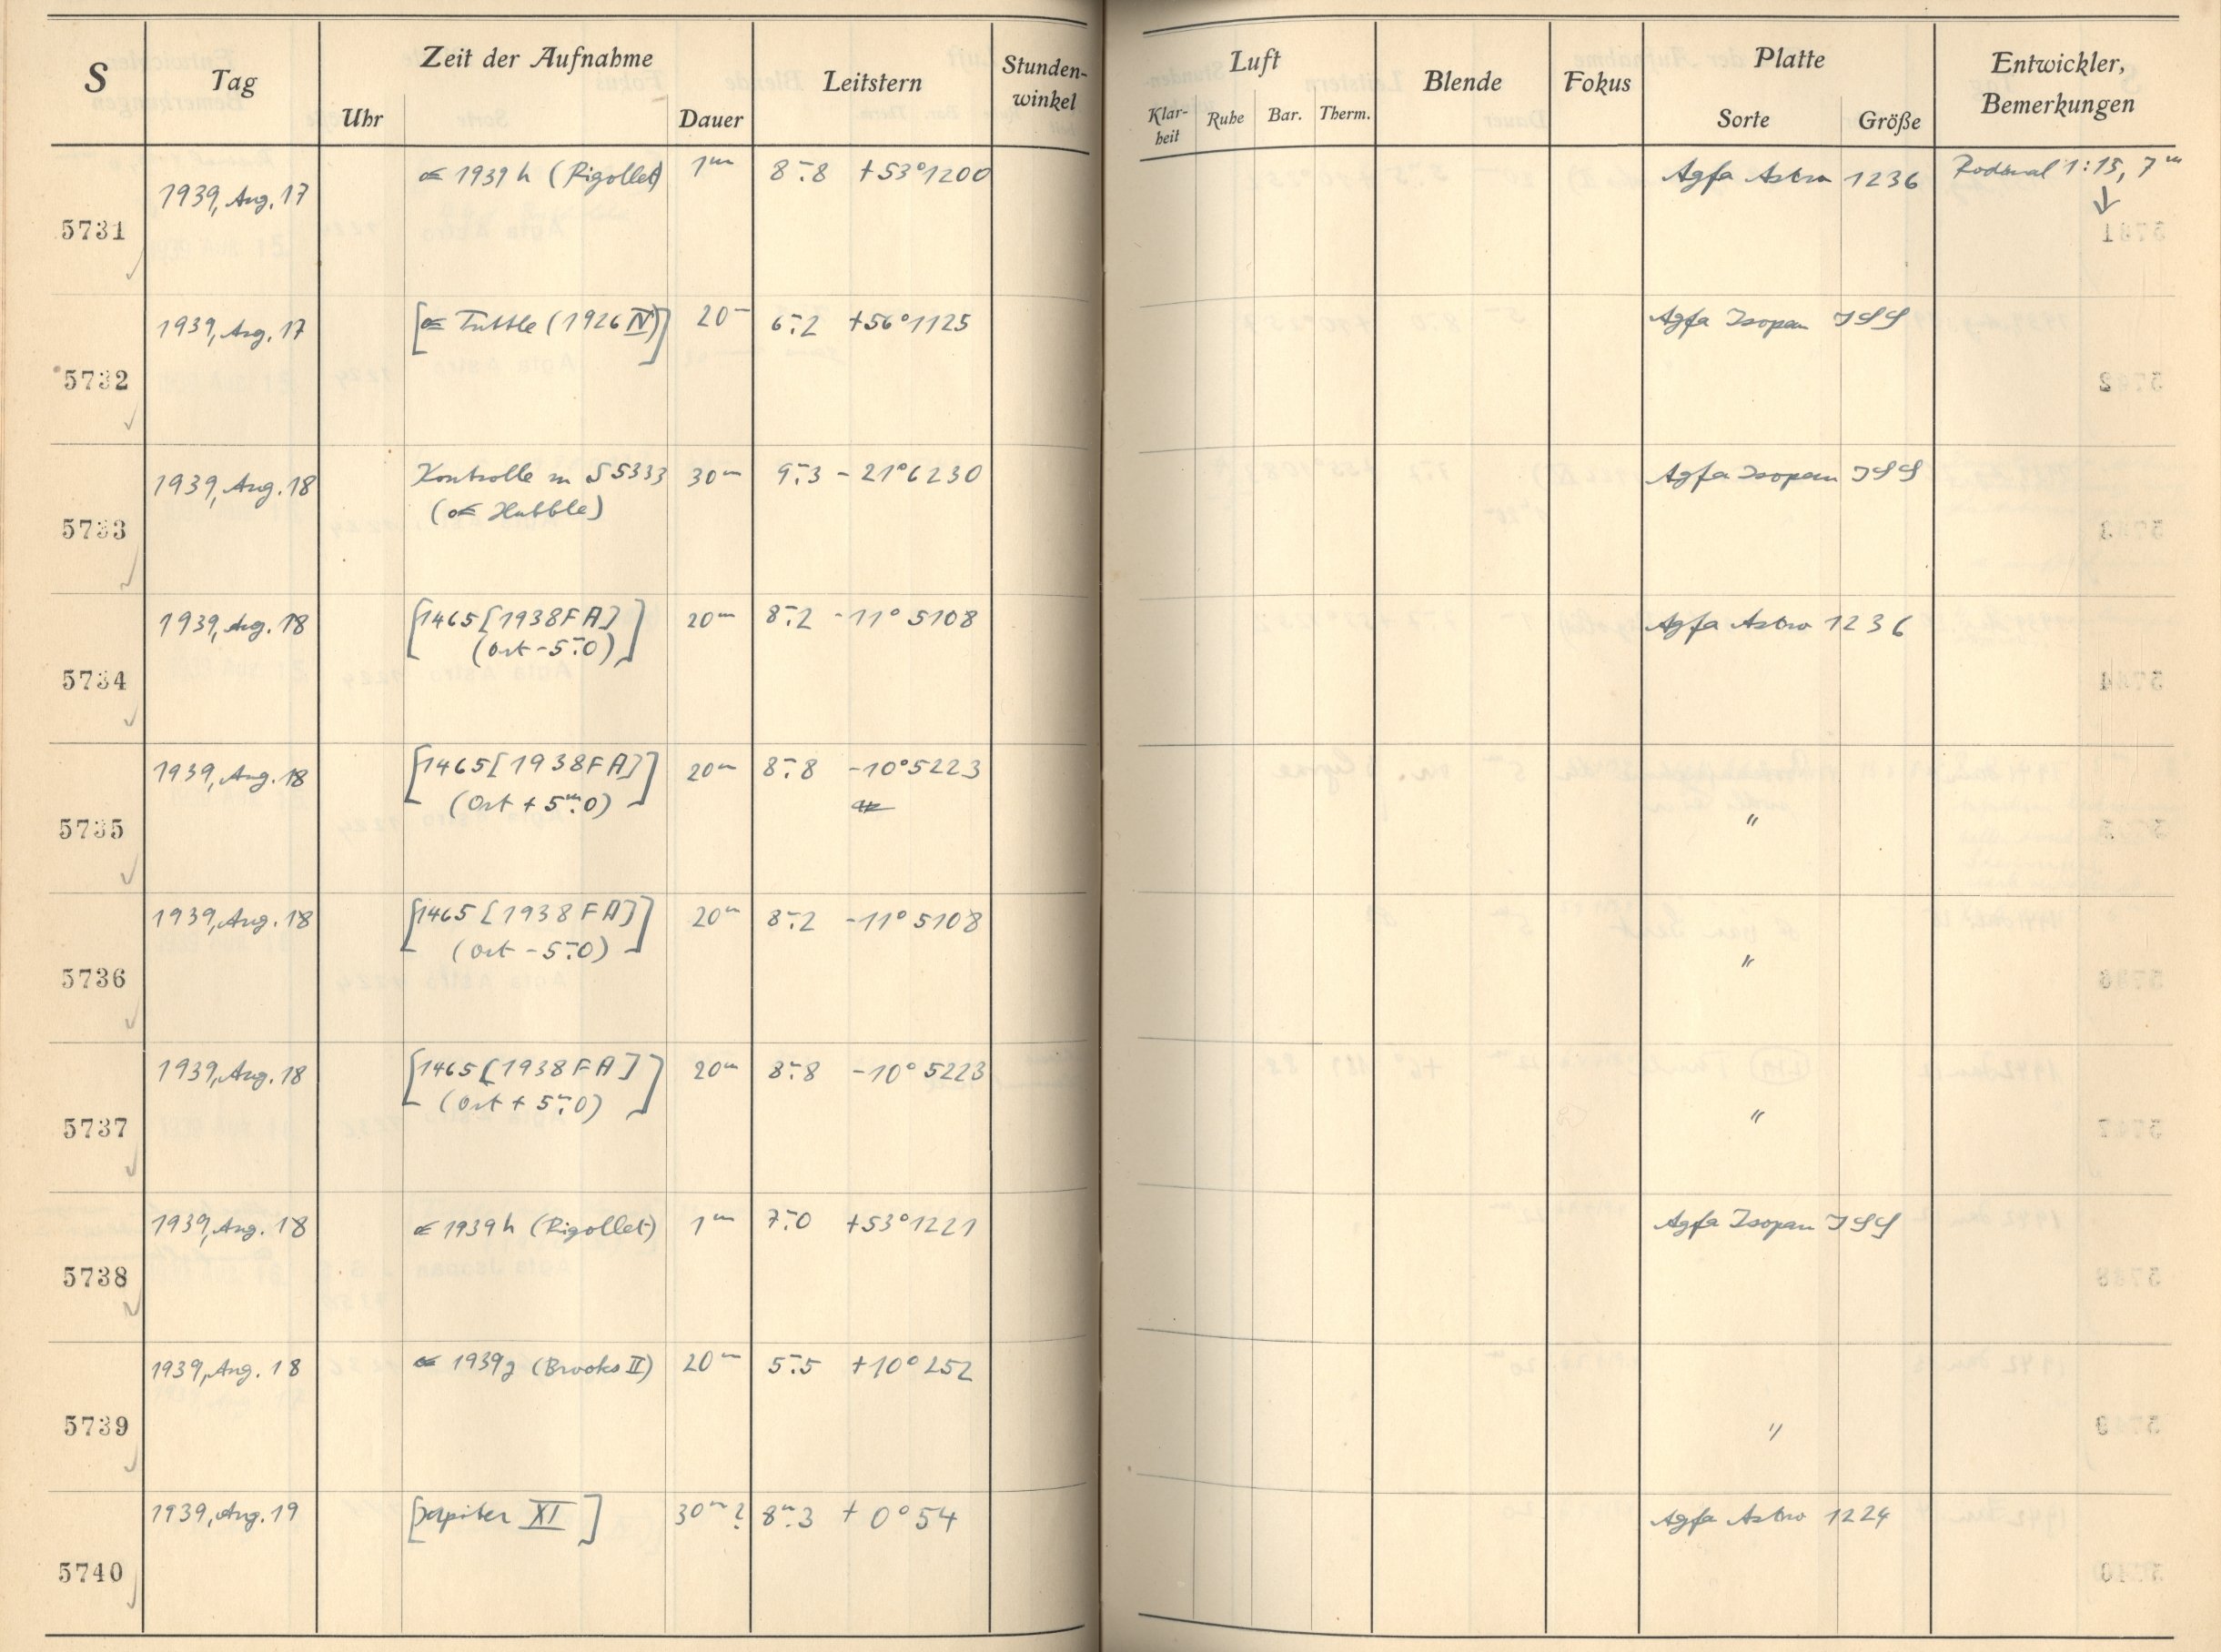 S Tag Zeit der Aufnahme Leitstern Stunden-winkel Luft Blende Fokus Platte Entwickler, Bemerkungen
Uhr Dauer Klar-heit Ruhe Bar. Therm. Sorte Größe
1939, Aug. 17 ☄ 1939 h (Rigollet) 1m 8m.8 +53°1200 Agfa Astro 1236 Rodinal 1:15, 7m
↓
5731
1939, Aug. 17 [☄ Tuttle (1926 IV)] 20m 6m.2 +56°1125 Agfa Isopan ISS
5732
1939, Aug. 18 Kontrolle zu S 5333 30m 9m.3 -21°6230 Agfa Isopan ISS
(☄ Hubble)
5733
1939, Aug. 18 [1465 [1938 FA] 20m 8m.2 -11°5108 Agfa Astro 1236
(Ort -5m.0)]
5734
1939, Aug. 18 [1465 [1938 FA] 20m 8m.8 -10°5223
(Ort + 5m.0)] "
5735
1939, Aug. 18 [1465 [1938 FA] 20m 8m.2 -11°5108
(Ort - 5m.0)] "
5736
1939, Aug. 18 [1465 [1938 FA] 20m 8m.8 -10°5223
(Ort + 5m.0)] "
5737
1939, Aug. 18 ☄ 1939 h (Rigollet) 1m 7m.0 +53°1221 Agfa Isopan ISS
5738
1939, Aug. 18 ☄ 1939g (Brooks II) 20m 5m.5 +10°252
5739 "
1939, Aug. 19 [Jupiter XI] 30m? 8m.3 + 0°54 Agfa Astro 1224
5740